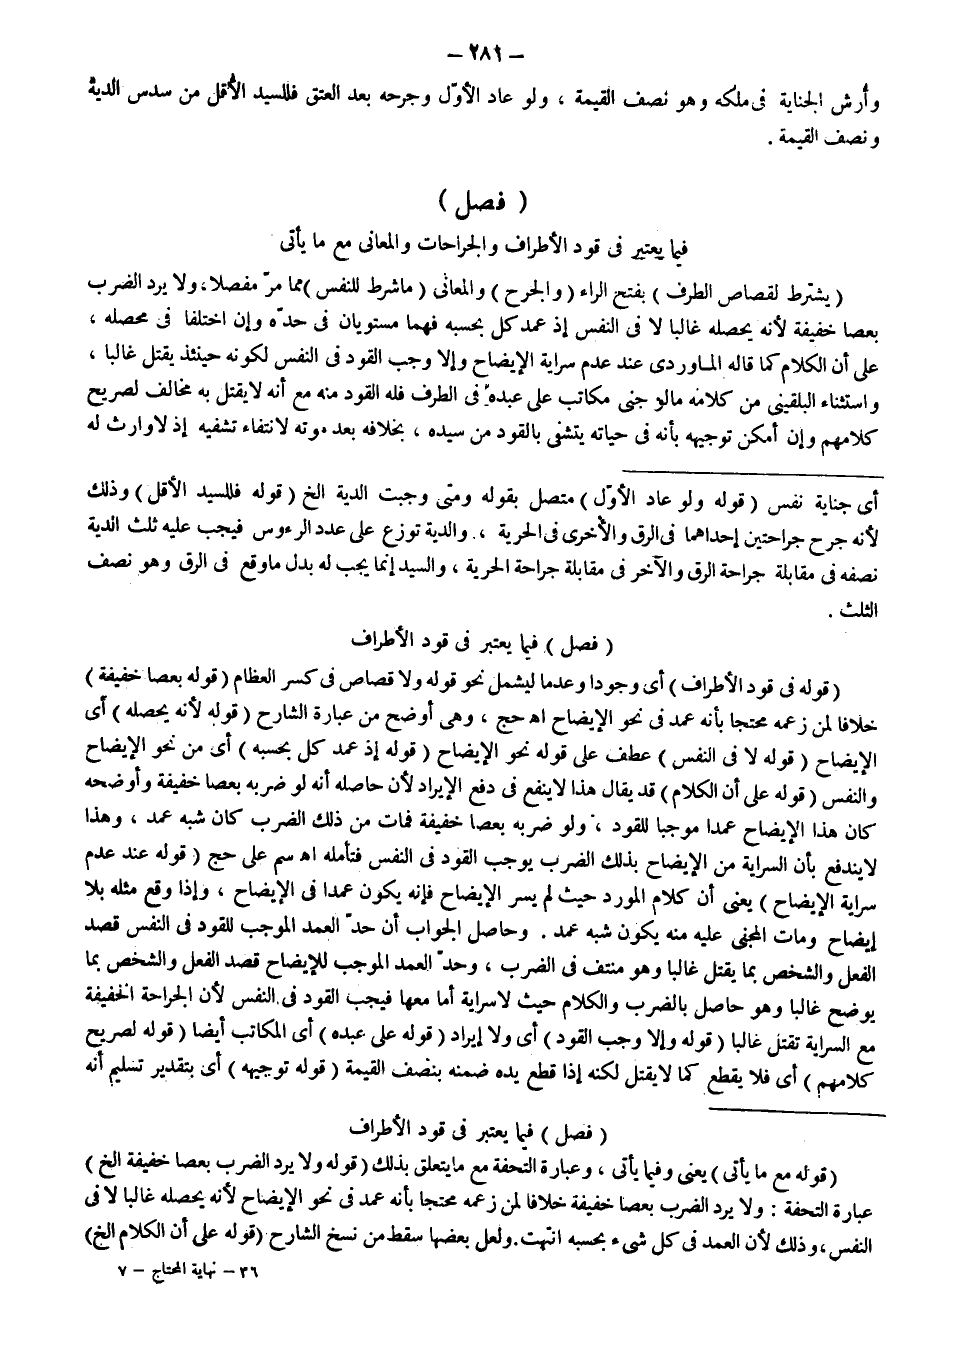 — ٢٨١ —
وأرش الجناية فى ملكه وهو نصف القيمة ، ولو عاد الأوّل وجرحه بعد العتق فللسيد الأقل من سدس الدية
ونصف القيمة .
( فصل )
فيما يعتبر فى قود الأطراف والجراحات والمعانى مع ما يأتى
( يشترط لقصاص الطرف ) بفتح الراء ( والجرح ) والمعانى ( ماشرط للنفس ) مما مرّ مفصلا، ولا يرد الضرب
بعصا خفيفة لأنه يحصله غالبا لا فى النفس إذ عمد كل بحسبه فهما مستويان فى حدّه وإن اختلفا فى محصله ،
على أن الكلام كما قاله الماوردى عند عدم سراية الإيضاح وإلا وجب القود فى النفس لكونه حينئذ يقتل غالبا ،
واستثناء البلقينى من كلامه مالو جنى مكاتب على عبده فى الطرف فله القود منه مع أنه لايقتل به مخالف لصريح
كلامهم وإن أمكن توجيهه بأنه فى حياته يتشفى بالقود من سيده ، بخلافه بعد موته لانتفاء تشفيه إذ لاوارث له
أى جناية نفس ( قوله ولو عاد الأوّل ) متصل بقوله ومتى وجبت الدية الخ ( قوله فللسيد الأقل ) وذلك
لأنه جرح جراحتين إحداهما فى الرق والأخرى فى الحرية ، والدية توزع على عدد الرءوس فيجب عليه ثلث الدية
نصفه فى مقابلة جراحة الرق والآخر فى مقابلة جراحة الحرية ، والسيد إنما يجب له بدل ماوقع فى الرق وهو نصف
الثلث .
( فصل ) فيما يعتبر فى قود الأطراف
( قوله فى قود الأطراف ) أى وجودا وعدما ليشمل نحو قوله ولا قصاص فى كسر العظام ( قوله بعصا خفيفة )
خلافا لمن زعمه محتجا بأنه عمد فى نحو الإيضاح اه حج ، وهى أوضح من عبارة الشارح ( قوله لأنه يحصله ) أى
الإيضاح ( قوله لا فى النفس ) عطف على قوله نحو الإيضاح ( قوله إذ عمد كل بحسبه ) أى من نحو الإيضاح
والنفس ( قوله على أن الكلام ) قد يقال هذا لاينفع فى دفع الإيراد لأن حاصله أنه لو ضربه بعصا خفيفة وأوضحه
كان هذا الإيضاح عمدا موجبا للقود ، ولو ضربه بعصا خفيفة فمات من ذلك الضرب كان شبه عمد ، وهذا
لايندفع بأن السراية من الإيضاح بذلك الضرب يوجب القود فى النفس فتأمله اه سم على حج ( قوله عند عدم
سراية الإيضاح ) يعنى أن كلام المورد حيث لم يسر الإيضاح فإنه يكون عمدا فى الإيضاح ، وإذا وقع مثله بلا
إيضاح ومات المجنى عليه منه يكون شبه عمد . وحاصل الجواب أن حدّ العمد الموجب للقود فى النفس قصد
الفعل والشخص بما يقتل غالبا وهو منتف فى الضرب ، وحدّ العمد الموجب للإيضاح قصد الفعل والشخص بما
يوضح غالبا وهو حاصل بالضرب والكلام حيث لاسراية أما معها فيجب القود فى النفس لأن الجراحة الخفيفة
مع السراية تقتل غالبا ( قوله وإلا وجب القود ) أى ولا إيراد ( قوله على عبده ) أى المكاتب أيضا ( قوله لصريح
كلامهم ) أى فلا يقطع كما لايقتل لكنه إذا قطع يده ضمنه بنصف القيمة ( قوله توجيهه ) أى بتقدير تسليم أنه
( فصل ) فيما يعتبر فى قود الأطراف
( قوله مع ما يأتى ) يعنى وفيما يأتى ، وعبارة التحفة مع مايتعلق بذلك ( قوله ولا يرد الضرب بعصا خفيفة الخ )
عبارة التحفة : ولا يرد الضرب بعصا خفيفة خلافا لمن زعمه محتجا بأنه عمد فى نحو الإيضاح لأنه يحصله غالبا لا فى
النفس ، وذلك لأن العمد فى كل شىء بحسبه انتهت. ولعل بعضها سقط من نسخ الشارح (قوله على أن الكلام الخ)
٣٦ – نهاية المحتاج – ٧